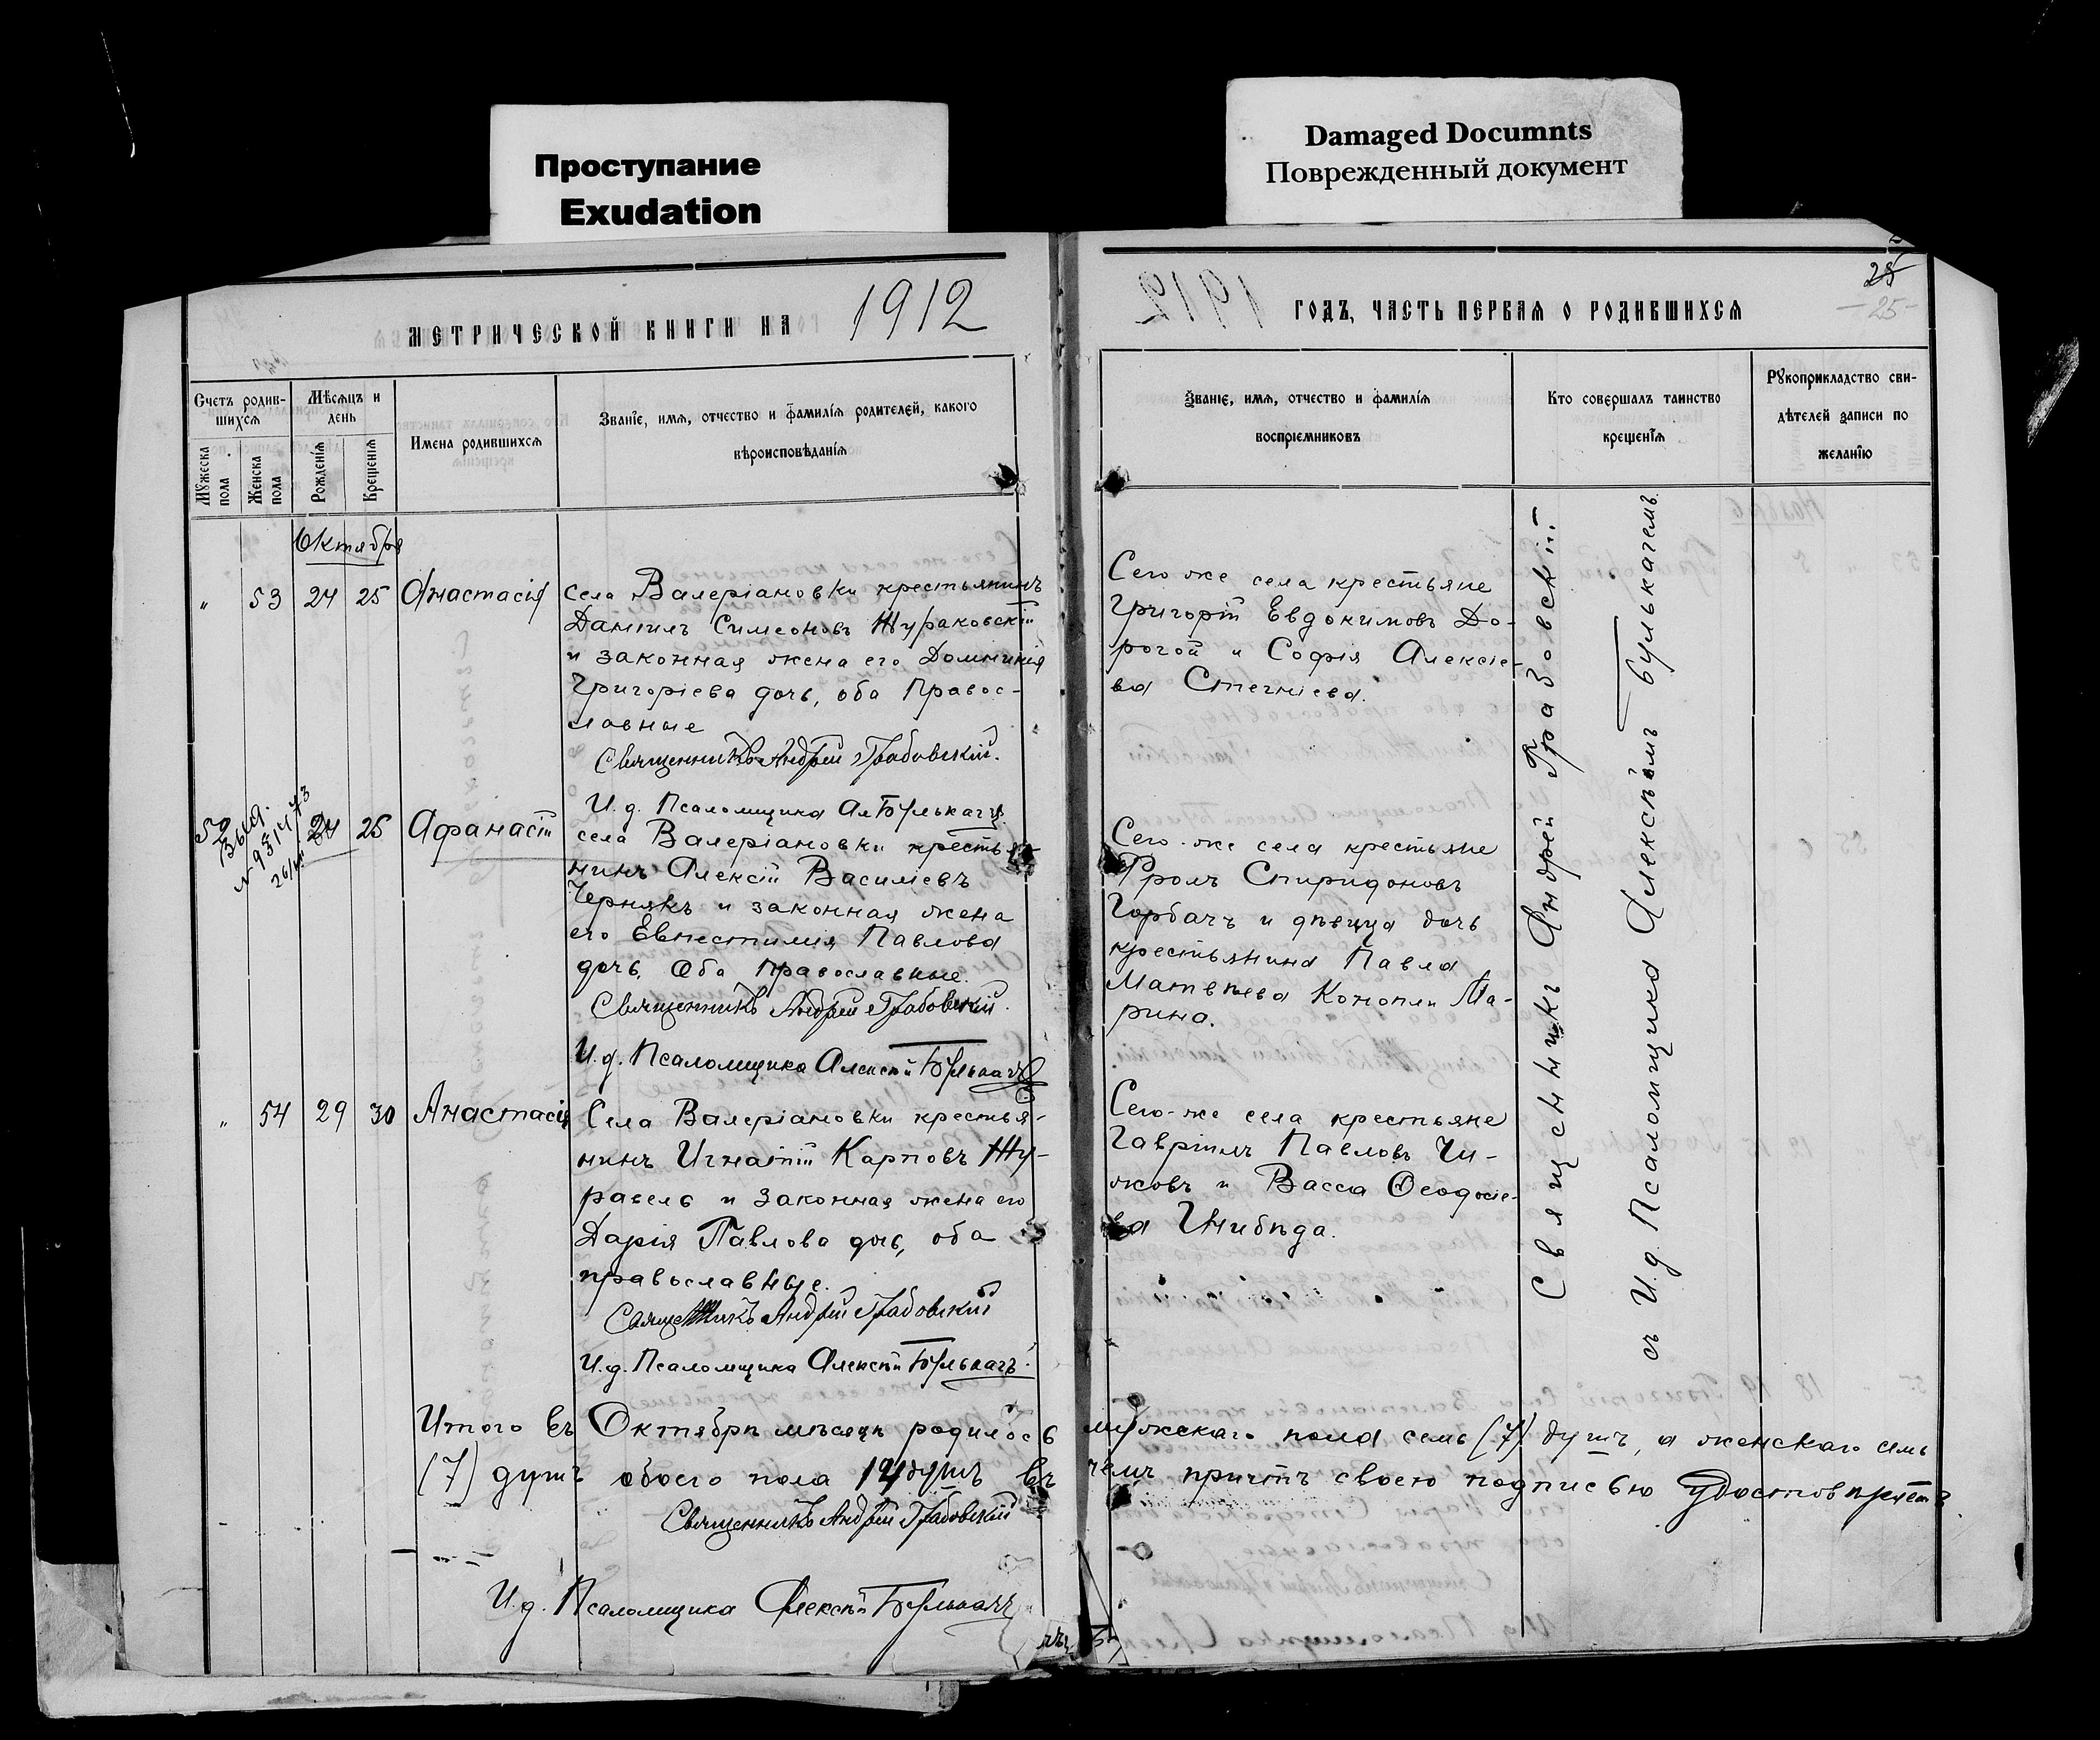 Проступание
Exudation
Damaged Documnts
Поврежденный документ
МЕТРИЧЕСКОЙ КНИГИ НА 1912
Счетъ родив-
шихся
Мѣсяцъ и
день
Мужеска
пола
Женска
пола
Рожденія
Крещенія
Имена родившихся
Званіе, имя, отчество и фамилія родителей, какого
вѣроисповѣданія
Октября
" 53 24 25 Анастасія
села Валеріановки крестьянинъ
Даніилъ Симеоновъ Жураковскій
и законная жена его Домникія
Григоріева дочь, оба Правос-
лавные
Священникъ Андрей Грабовскій.
И.д. Псаломщика Ал Булькачъ.
52 24 25 Афанасій
Выд.
села Валеріановки крестья-
нинъ Алексій Василіевъ
Чернякъ и законная жена
его Евпестимія Павлова
дочь, Оба Православные.
Священникъ Андрей Грабовскій.
И.д. Псаломщика Алексѣй Булькачъ
" 54 29 30 Анастасія
Села Валеріановки крестья-
нинъ Игнатій Карповъ Жу-
равель и законная жена его
Дарія Павлова дочь, оба
православные.
Священникъ Андрей Грабовскій
И.д. Псаломщика Алексѣй Булькачъ.
ГОДЪ, ЧАСТЬ ПЕРВАЯ О РОДИВШИХСЯ
25
-25-
Званіе, имя, отчество и фамилія
воспріемниковъ
Кто совершалъ таинство
крещенія
Рукоприкладство сви-
дѣтелей записи по
желанію
Сего же села крестьяне
Григорій Евдокимовъ До-
рогой и Софія Алексіе-
ва Стегніева.
Сего-же села крестьяне
Фролъ Спиридоновъ
Горбачъ и дѣвица дочь
крестьянина Павла
Матвѣева Конопли Ма-
рина.
Сего-же села крестьяне
Гавріилъ Павловъ Чи-
жовъ и Васса Ѳеодосіе-
ва Гнибѣда.
Священникъ Андрей Грабовскій
съ И.д. Псаломщика Алексѣемъ Булькачемъ.
Итого въ Октябрѣ мѣсяцѣ родилось мужскаго пола семь (7) душъ, а женскаго семь
(7) душъ обоего пола 14 душъ въ чемъ причтъ своею подписью удостовѣряетъ.
Священникъ Андрей Грабовскій
И.д. Псаломщика Алексѣй Булькачъ